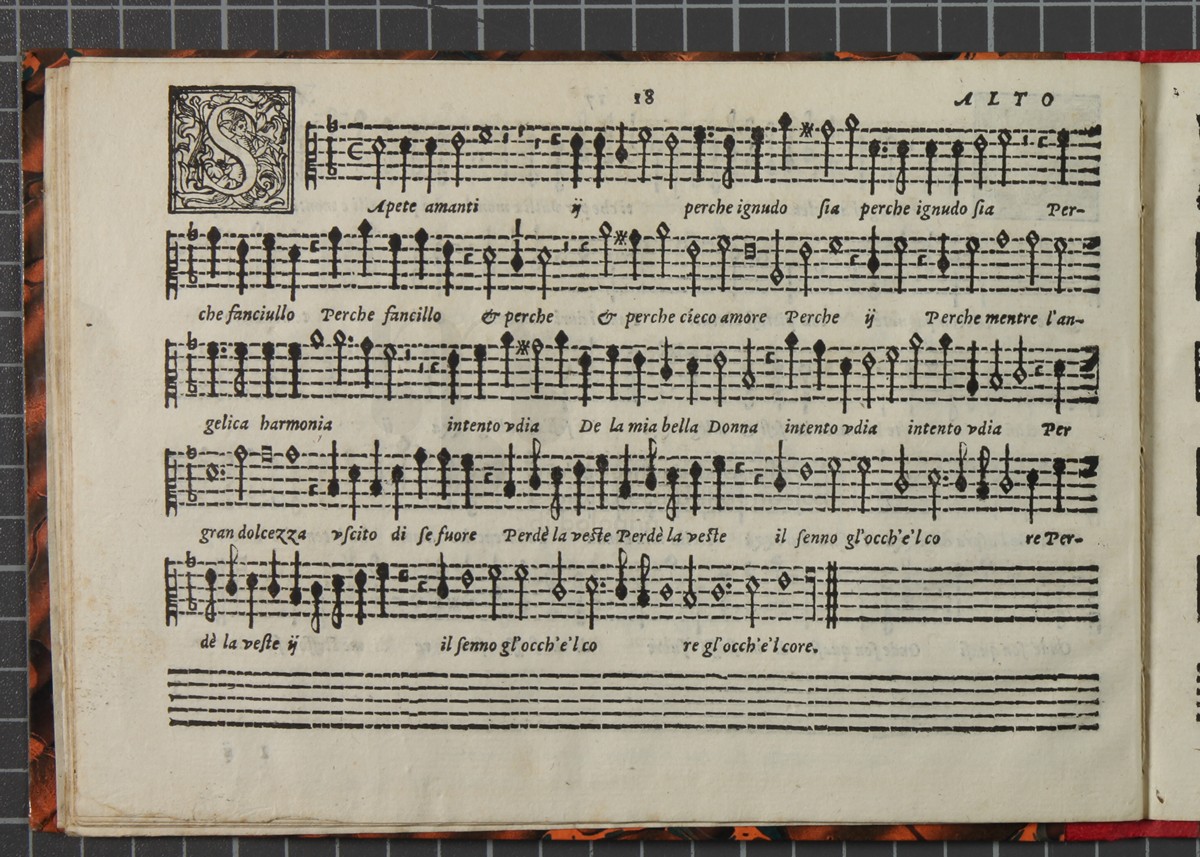 18 ALTO
SApete amanti ij perche ignudo ſia perche ignudo ſia Per-
che fanciullo Perche fancillo & perche & perche cieco amore Perche ij Perche mentre l'an-
gelica harmonia intento vdia De la mia bella Donna intento vdia intento vdia Per
gran dolcezza vſcito di ſe fuore Perdè la veſte Perdè la veſte il ſenno gl'occh'e'l co re Per-
dè la veſte ij il ſenno gl'occh'e'l co re gl'occh'e'l core.